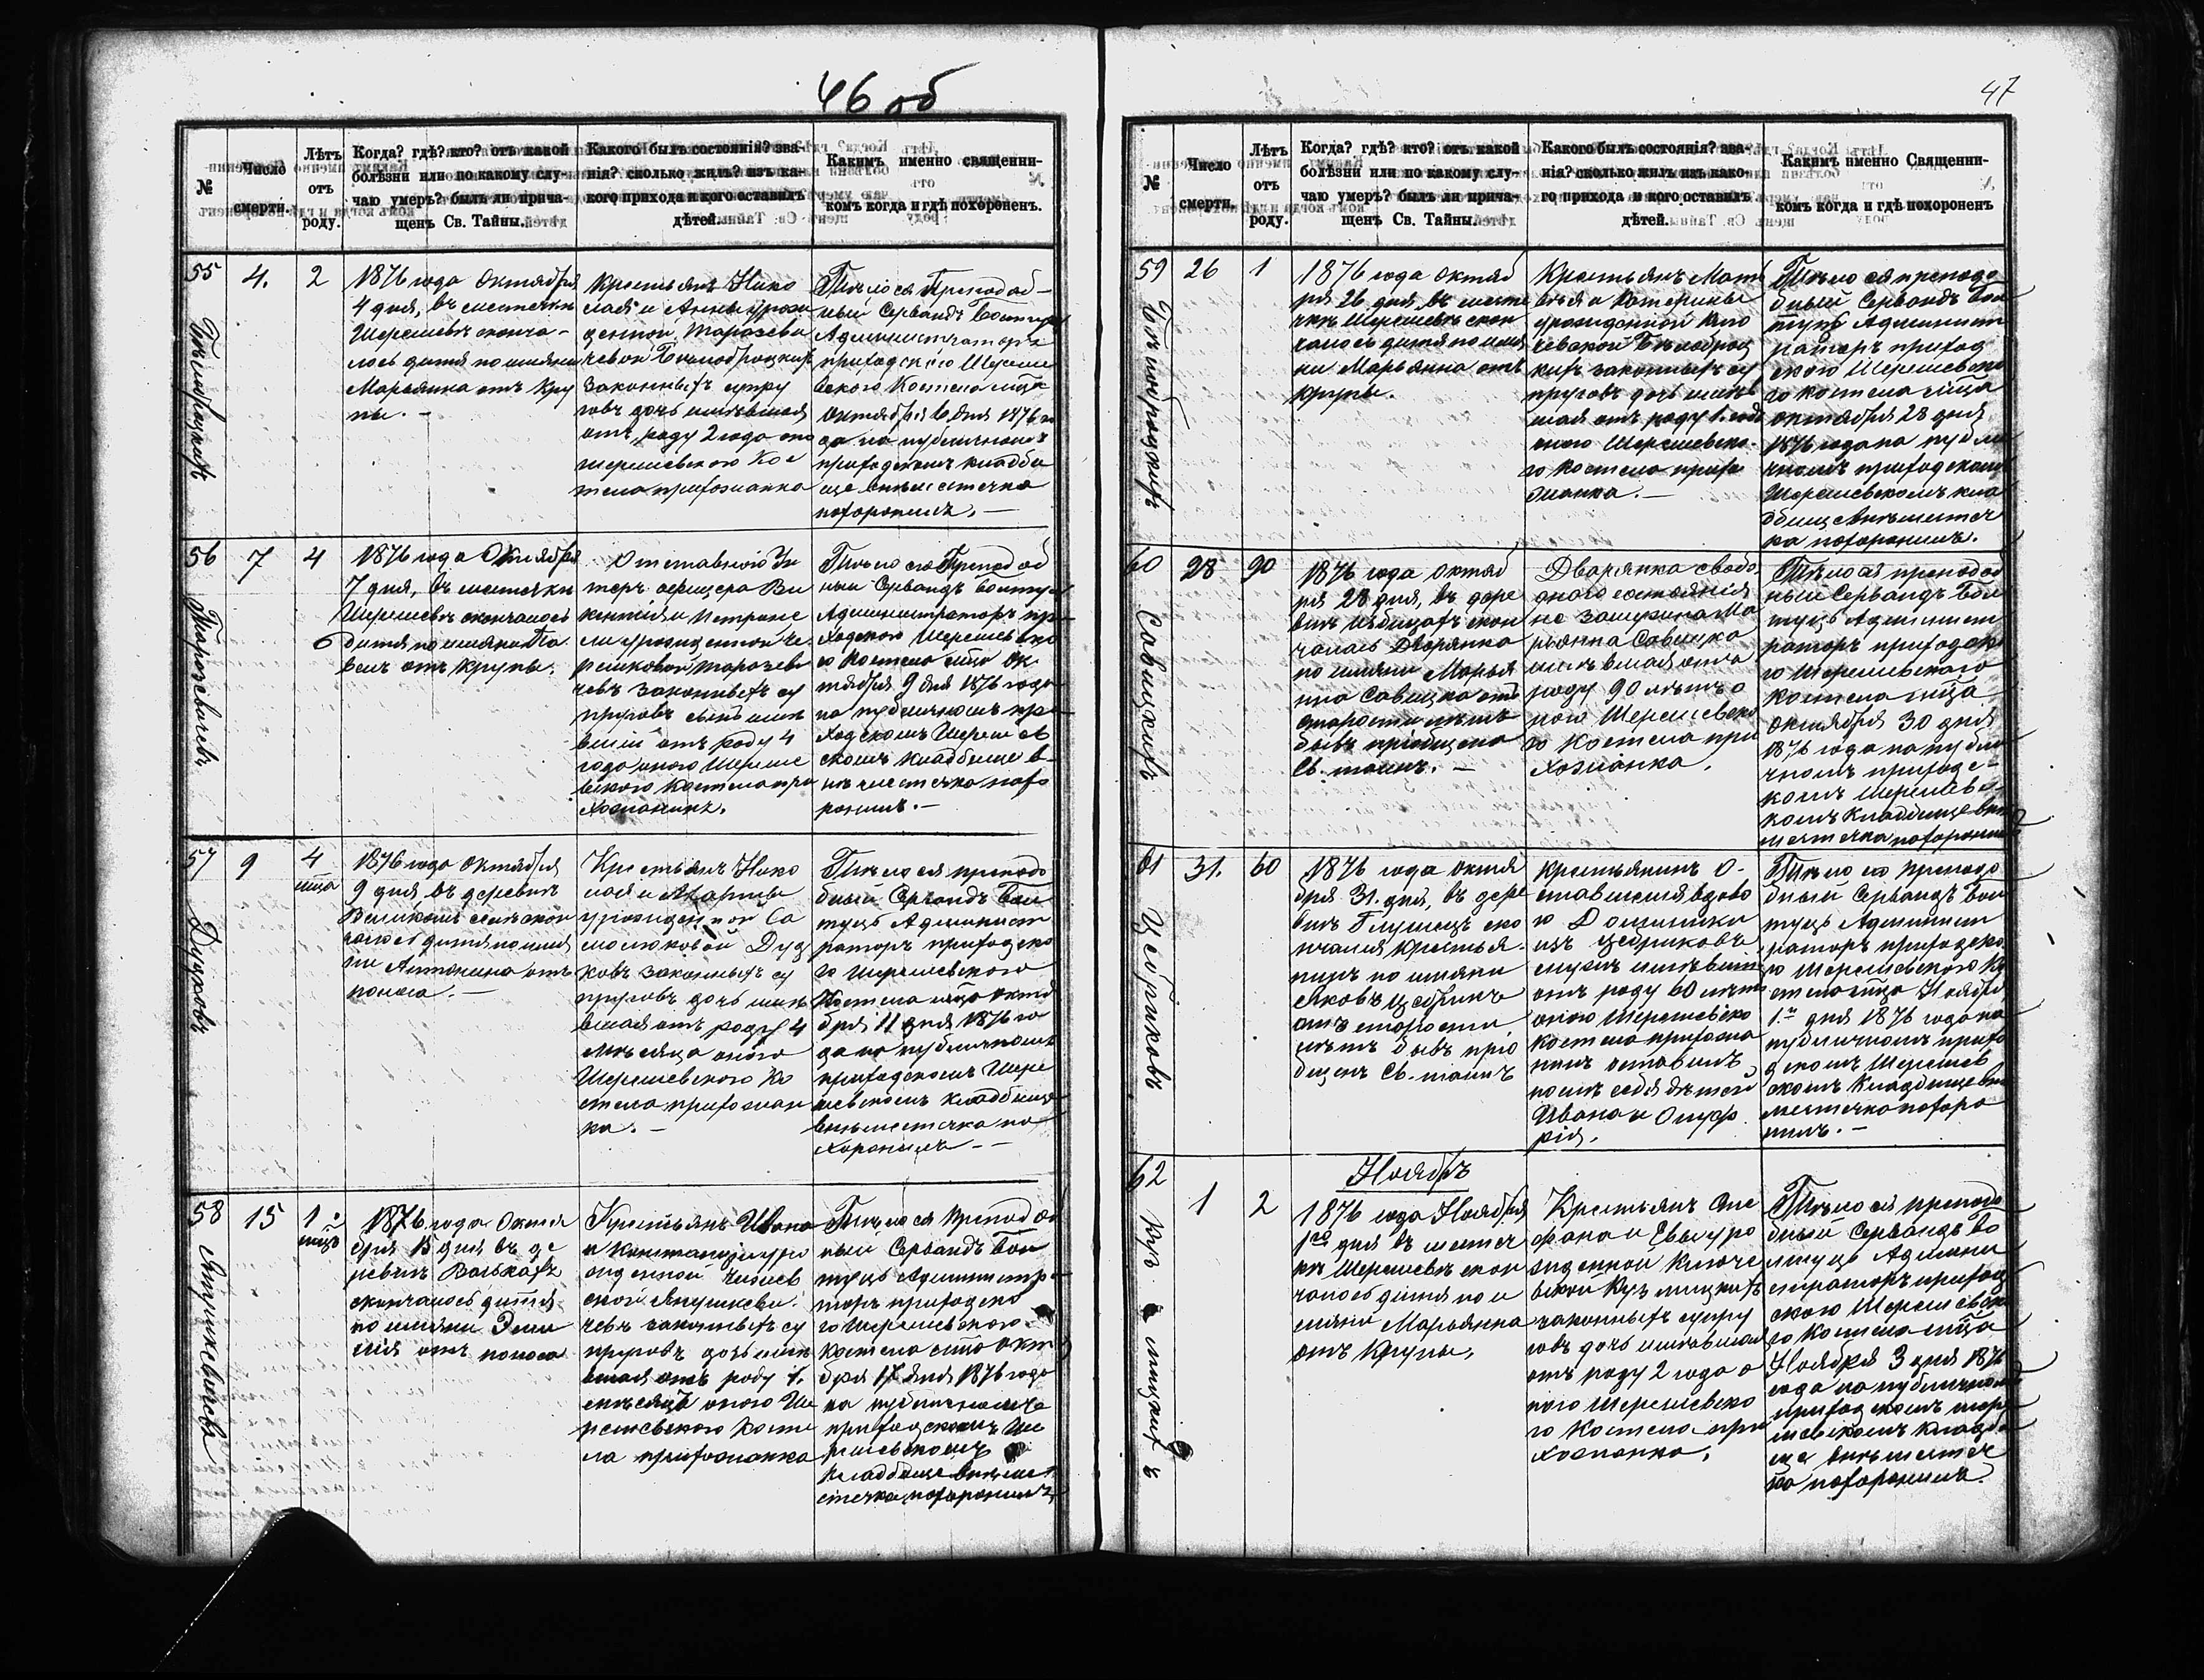 46 об
№
Число смерти.
Лѣтъ отъ роду.
Когда? гдѣ? кто? отъ какой
болѣзни или по какому слу-
чаю умеръ? былъ ли прича-
щенъ Св. Тайны.
Какого былъ состоянія? зва-
нія? сколько жилъ? изъ ка-
кого прихода и кого оставилъ
дѣтей.
Какимъ именно священни-
комъ когда и гдѣ похороненъ.
55
4.
2
1876 года Октября
4 дня, въ местечкѣ
Шерешевѣ сконча-
лось дитя по имяни
Марьянна отъ Кру
пы. —
Крестьянъ Нико
лая и Анны урож
денной Тарасеви
чевой Бѣлобродкихъ
законныхъ супру
говъ дочь имѣвшая
отъ роду 2 года она
шерешевского Кос
тела прихожанка
Тѣло ея Преподоб-
ный Сервандъ
Администраторъ
приходского Шереше
вского Костела м-ца
Октября 6 дня 1876 го
да на публичномъ
приходскомъ кладби
ще внѣ местечка
похоронилъ. —
56
Тарасевичевъ
7
4
1876 года Октября
7 дня, въ местечкѣ
Шерешевѣ скончалось
дитя по имяни Па
велъ отъ крупы.
Отставного Ун
теръ офицера Ви
кентія и Петроне
ли урожденной Че
решковой Тарасеви
чевъ законныхъ су
пруговъ сынъ имѣ
вшій отъ роду 4
года оного Шереше
вского Костела при
хожанинъ.
Тѣло его Преподоб
ный Сервандъ
Администраторъ при
ходского Шерешевско
го Костела м-ца Ок
тября 9 дня 1876 года
на публичномъ при
ходскомъ Шерешев
скомъ кладбище в-
нѣ местечка похо
ронилъ. —
57
Дудковъ
9
4
м-ца
1876 года Октября
9 дня, въ деревнѣ
Великомъ селѣ скон
чалось дитя по имя
ни Антонина отъ
поноса. —
Крестьянъ Нико
лая и Марты
урожденной Са
молюковой Дуд
ковъ законныхъ су
пруговъ дочь имѣ
вшая отъ роду 4
мѣсяца оного
Шерешевского Ко
стела прихожан
ка. —
Тѣло ея преподо
бный Сервандъ
Админист
раторъ приходско
го Шерешевского
Костела м-ца Октя
бря 11 дня 1876 го
да на публичномъ
приходскомъ Шере
шевскомъ кладбище
внѣ местечка по
хоронилъ —
58
Янушкевичева
15
1
м-цъ
1876 года Октя
бря 15 дня въ де
ревнѣ Волькахъ
скончалось дитя
по имяни Эми
лія отъ поноса
Крестьянъ Ивана
и Констанціи уро
жденной
Янушкеви
чевъ законныхъ су
пруговъ дочь имѣ
вшая отъ роду 1.
мѣсяцъ оного Ше
решевского Косте
ла прихожанка
Тѣло ея Преподоб
ный Сервандъ
Администра
торъ приходско
го Шерешевского
Костела м-ца Октя
бря 17 дня 1876 года
на публичномъ
приходскомъ Ше
решевскомъ
кладбище внѣ ме
стечка похоронилъ
47
№
Число смерти.
Лѣтъ отъ роду.
Когда? гдѣ? кто? отъ какой
болѣзни или по какому слу-
чаю умеръ? былъ ли прича-
щенъ Св. Тайны.
Какого былъ состоянія? зва-
нія? сколько жилъ изъ како-
го прихода и кого оставилъ
дѣтей.
Какимъ именно Священни-
комъ когда и гдѣ похороненъ
59
Бѣлобродкихъ
26
1
1876 года Октяб
ря 26 дня, въ месте
чкѣ Шерешевѣ скон
чалось дитя по имя
ни Марьянна отъ
крупы.
Крестьянъ Мат
вѣя и Катерины
урожденной Клю
чевской Бѣлоброд
кихъ законныхъ су
пруговъ дочь имѣв
шая отъ роду 1. годъ
оного Шерешевско-
го Костела прихо
жанка. —
Тѣло ея преподо
бный Сервандъ
Админист
раторъ приход
ского Шерешевско
го Костела м-ца
Октября 28 дня
1876 года на публи
чномъ приходскомъ
Шерешевскомъ кла
дбище внѣ местеч
ка похоронилъ.
60
Савицкихъ
28
90
1876 года Октяб
ря 28 дня, въ дере
внѣ скон
чалась Дворянка
по имяни Марья
нна Савицка отъ
старости лѣтъ
бывъ пріобщена
Св. таинъ. —
Дворянка свобо
дного состоянія
не замужна Ма
рьянна Савицка
имѣвшая отъ
роду 90 лѣтъ о
ного Шерешевско
го Костела при
хожанка.
Тѣло ея преподоб
ный Сервандъ
Админист
раторъ приходско
го Шерешевского
Костела м-ца
Октября 30 дня
1876 года на публи
чномъ приходс-
комъ Шерешевс-
комъ кладбище внѣ
местечка похоронилъ
61
Цебриковъ
31.
60
1876 года Октя
бря 31. дня, въ дере
внѣ ско
нчался Крестья-
нинъ по имяни
Яковъ Цебрикъ
отъ старости
лѣтъ бывъ прiо
бщенъ Св. таинъ
Крестьянинъ о-
ставшейся вдово
ю Доминики
изъ Цебриковъ
мужъ имѣвшій
отъ роду 60 лѣтъ
оного Шерешевско
Костела прихожа
нинъ оставилъ
по себѣ дѣтей
Ивана и Онуф
рія.
Тѣло его Преподо
бный Сервандъ
Админист
раторъ приходско
го Шерешевского Ко
стела м-ца Ноября
1-го дня 1876 года на
публичномъ прихо
дскомъ Шерешев
скомъ Кладбище внѣ
местечка похоро
нилъ. —
62
1
2
Ноябрь
1876 года Ноября
1го дня въ местеч
кѣ Шерешевѣ скон
чалось дитя по и
мяни Марьянна
отъ Крупы.
Крестьянъ Сте
фана и Евы уро
жденной Ключе
вской Кузьмицкихъ
законныхъ супру
говъ дочь имѣвшая
отъ роду 2 года о
ного Шерешевско
го Костела при
хожанка.
Тѣло ея преподо
бный Сервандъ
Админи
страторъ приход
ского Шерешевско
го Костела м-ца
Ноября 3 дня 1876
года на публичномъ
приходскомъ шере
шевскомъ кладби
ще внѣ местеч
ка похоронилъ.